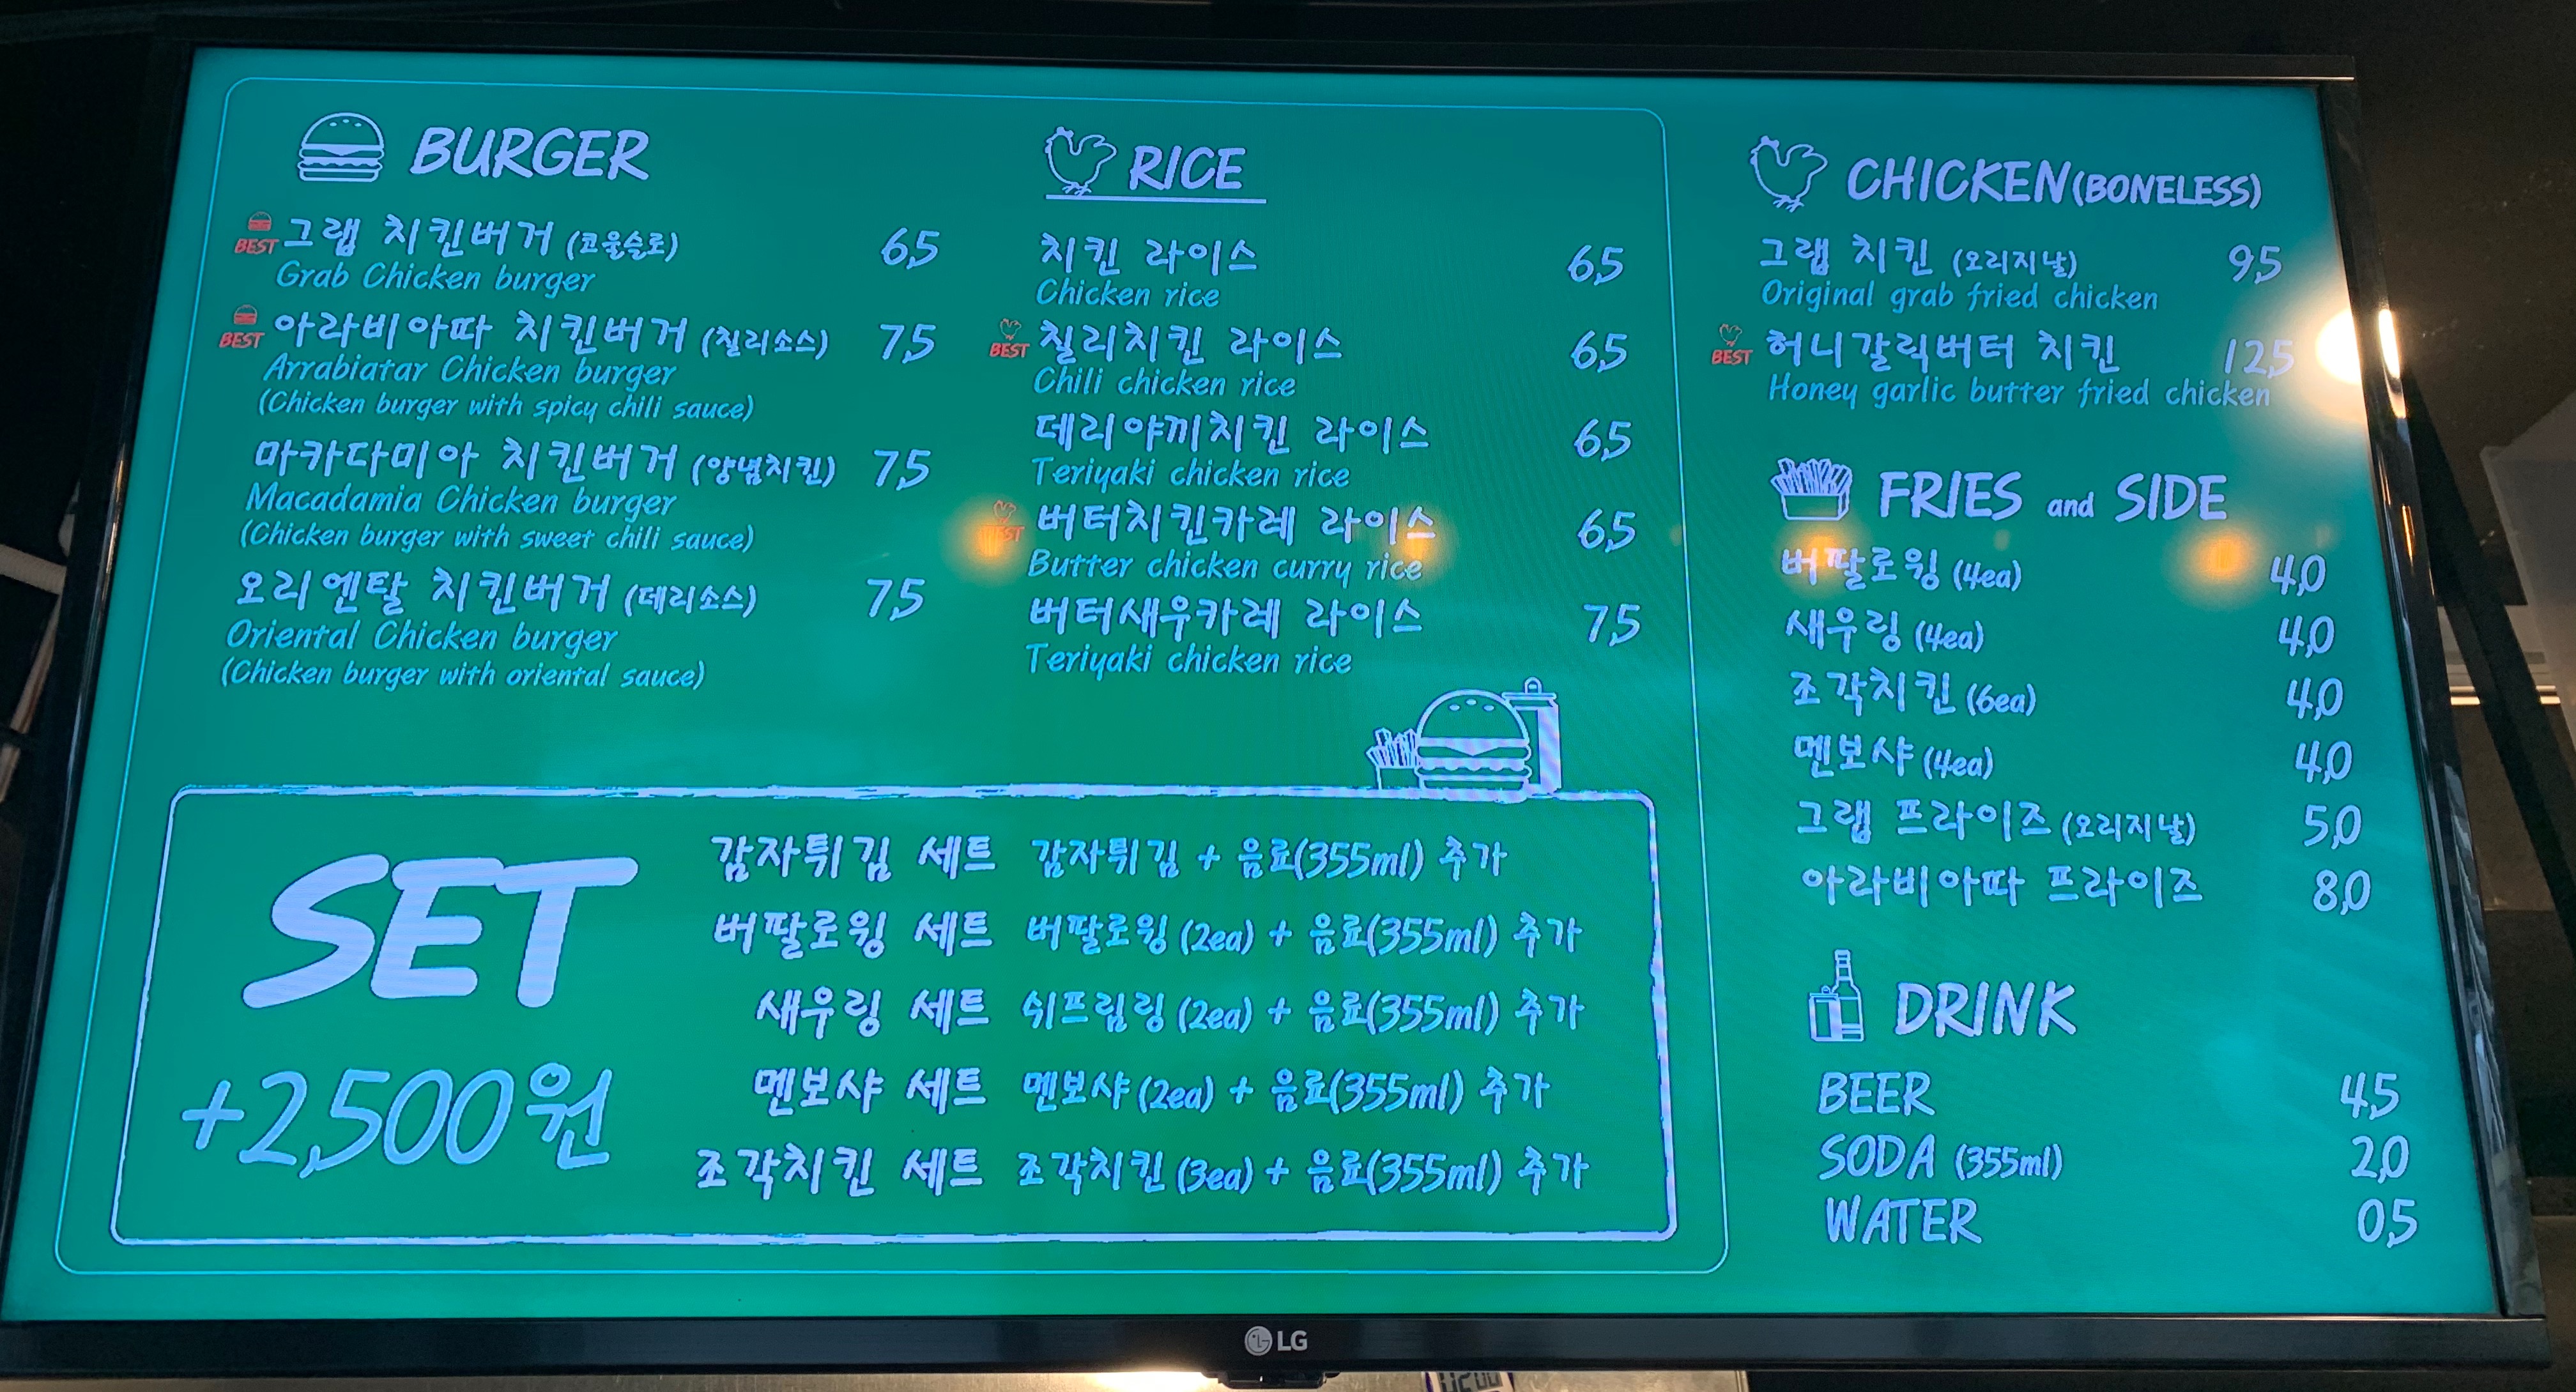 BURGER
BEST 그랩 치킨버거 (코울슬로) 6,5
Grab Chicken burger
BEST 아라비아따 치킨버거 (칠리소스) 7,5
Arrabiatar Chicken burger
(Chicken burger with spicy chili sauce)
마카다미아 치킨버거 (양념치킨) 7,5
Macadamia Chicken burger
(Chicken burger with sweet chili sauce)
오리엔탈 치킨버거 (데리소스) 7,5
Oriental Chicken burger
(Chicken burger with oriental sauce)
RICE
치킨 라이스 6,5
Chicken rice
BEST 칠리치킨 라이스 6,5
Chili chicken rice
데리야끼치킨 라이스 6,5
Teriyaki chicken rice
BEST 버터치킨카레 라이스 6,5
Butter chicken curry rice
버터새우카레 라이스 7,5
Teriyaki chicken rice
SET
+2,500원
감자튀김 세트 감자튀김 + 음료(355ml) 추가
버팔로윙 세트 버팔로윙 (2ea) + 음료(355ml) 추가
새우링 세트 쉬프림링 (2ea) + 음료(355ml) 추가
멘보샤 세트 멘보샤 (2ea) + 음료(355ml) 추가
조각치킨 세트 조각치킨 (3ea) + 음료(355ml) 추가
CHICKEN (BONELESS)
그랩 치킨 (오리지날) 9,5
Original grab fried chicken
BEST 허니갈릭버터 치킨 12,5
Honey garlic butter fried chicken
FRIES and SIDE
버팔로윙 (4ea) 4,0
새우링 (4ea) 4,0
조각치킨 (6ea) 4,0
멘보샤 (4ea) 4,0
그랩 프라이즈 (오리지날) 5,0
아라비아따 프라이즈 8,0
DRINK
BEER 4,5
SODA (355ml) 2,0
WATER 0,5
LG